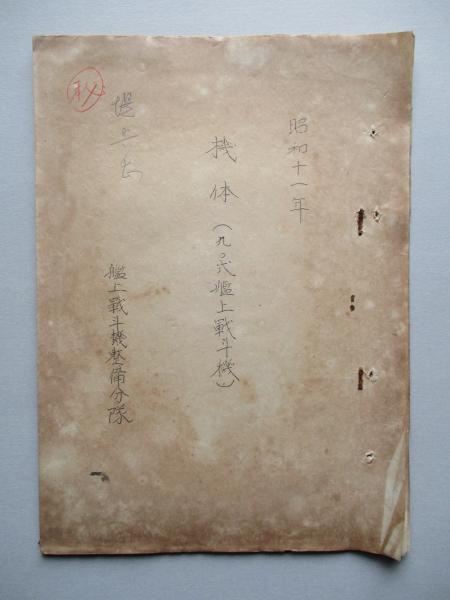 昭和十一年
機体(九〇式艦上戦斗機)
艦上戦斗機整備分隊
秘